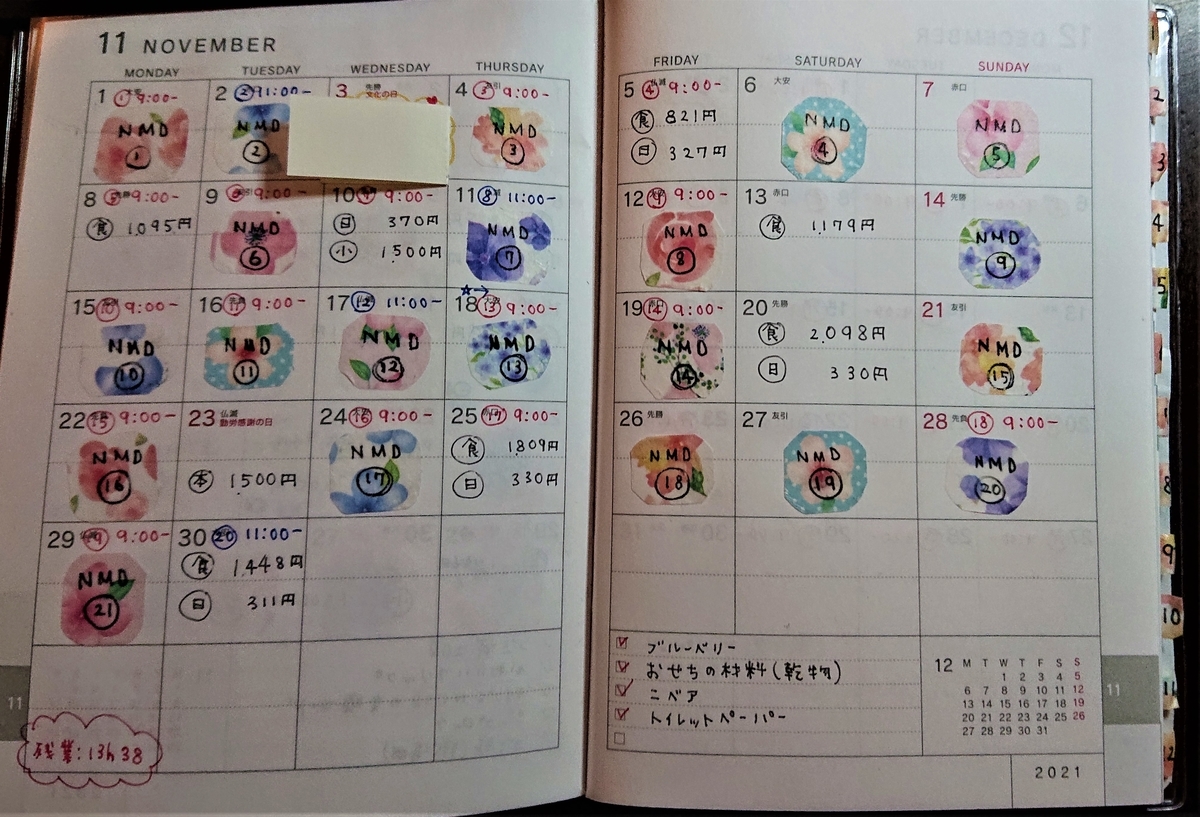 11 NOVEMBER
MONDAY TUESDAY WEDNESDAY THURSDAY
1 大安 ① 9:00-
NMD
①
2 ② 11:00-
NMD
②
3 先勝
文化の日
4 友引 ③ 9:00-
NMD
③
8 ⑤ 9:00-
食 1,095円
9 ⑥ 9:00-
NMD
⑥
10 9:00-
日 370円
小 1,500円
11 ⑧ 11:00-
NMD
⑦
15 ⑩ 9:00-
NMD
⑩
16 ⑪ 9:00-
NMD
⑪
17 ⑫ 11:00-
NMD
⑫
☆→
18 大安 ⑬ 9:00-
NMD
⑬
22 ⑮ 9:00-
NMD
⑯
23 仏滅
勤労感謝の日
本 1500円
24 ⑯ 9:00-
NMD
⑰
25 ⑰ 9:00-
食 1809円
日 330円
29 ⑲ 9:00-
NMD
㉑
30 ⑳ 11:00-
食 1,448円
日 311円
11
残業:13h 38
FRIDAY SATURDAY SUNDAY
5 仏滅 ④ 9:00-
食 821円
日 327円
6 大安
NMD
④
7 赤口
NMD
⑤
12 9:00-
NMD
⑧
13 赤口
食 1,179円
14 先勝
NMD
⑨
19 赤口 ⑭ 9:00-
NMD
⑭
20 先勝
食 2,098円
日 330円
21 友引
NMD
⑮
26 先勝
NMD
⑱
27 友引
NMD
⑲
28 先負 ⑱ 9:00-
NMD
⑳
☑ ブルーベリー
☑ おせちの材料(乾物)
☑ ニベア
☑ トイレットペーパー
□
12 M T W T F S S
1 2 3 4 5
6 7 8 9 10 11 12
13 14 15 16 17 18 19
20 21 22 23 24 25 26
27 28 29 30 31
11
2021